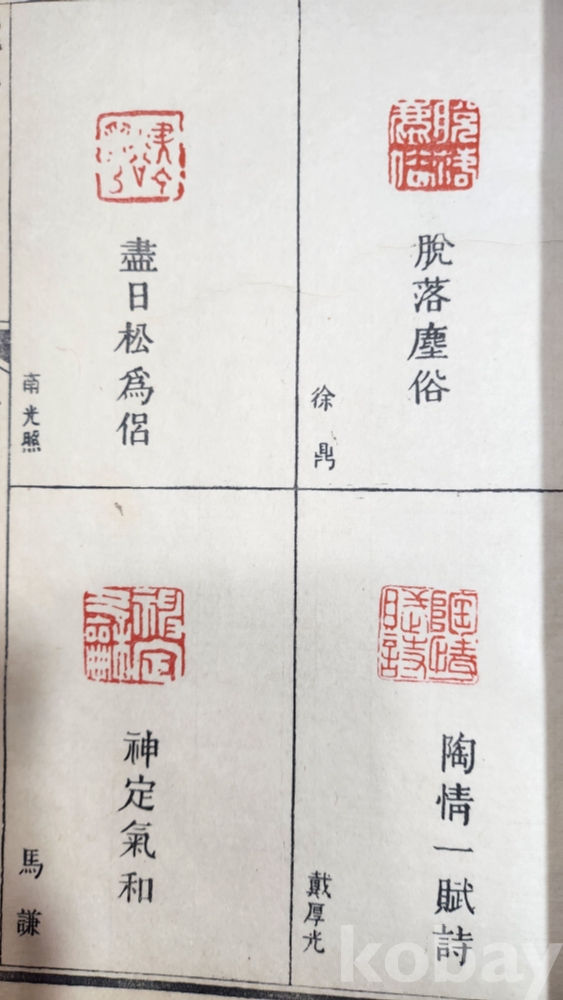 脫落塵俗
徐鼎
盡日松爲侶
南光照
陶情一賦詩
戴厚光
神定氣和
馬謙
kobay